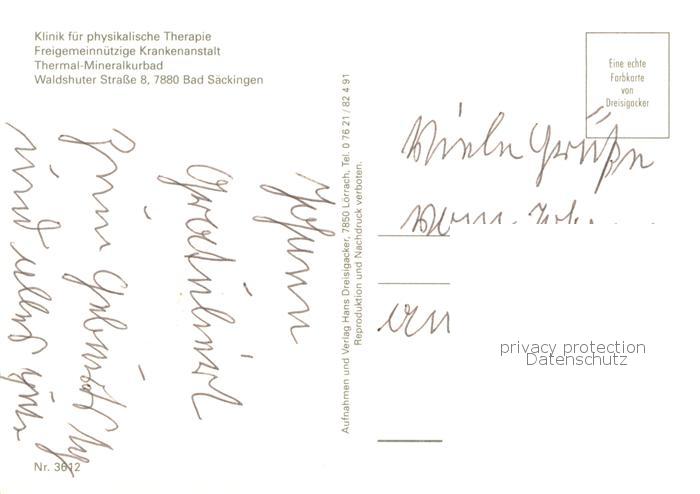 Klinik für physikalische Therapie
Freigemeinnützige Krankenanstalt
Thermal-Mineralkurbad
Waldshuter Straße 8, 7880 Bad Säckingen
Eine echte
Farbkarte
von
Dreisigacker
Viele Grüße
Aufnahmen und Verlag Hans Dreisigacker, 7850 Lörrach, Tel. 0 76 21 / 82 4 91
Reproduktion und Nachdruck verboten.
gratuliert
zum Geburtstag
und alles gute
privacy protection
Datenschutz
Nr. 3612